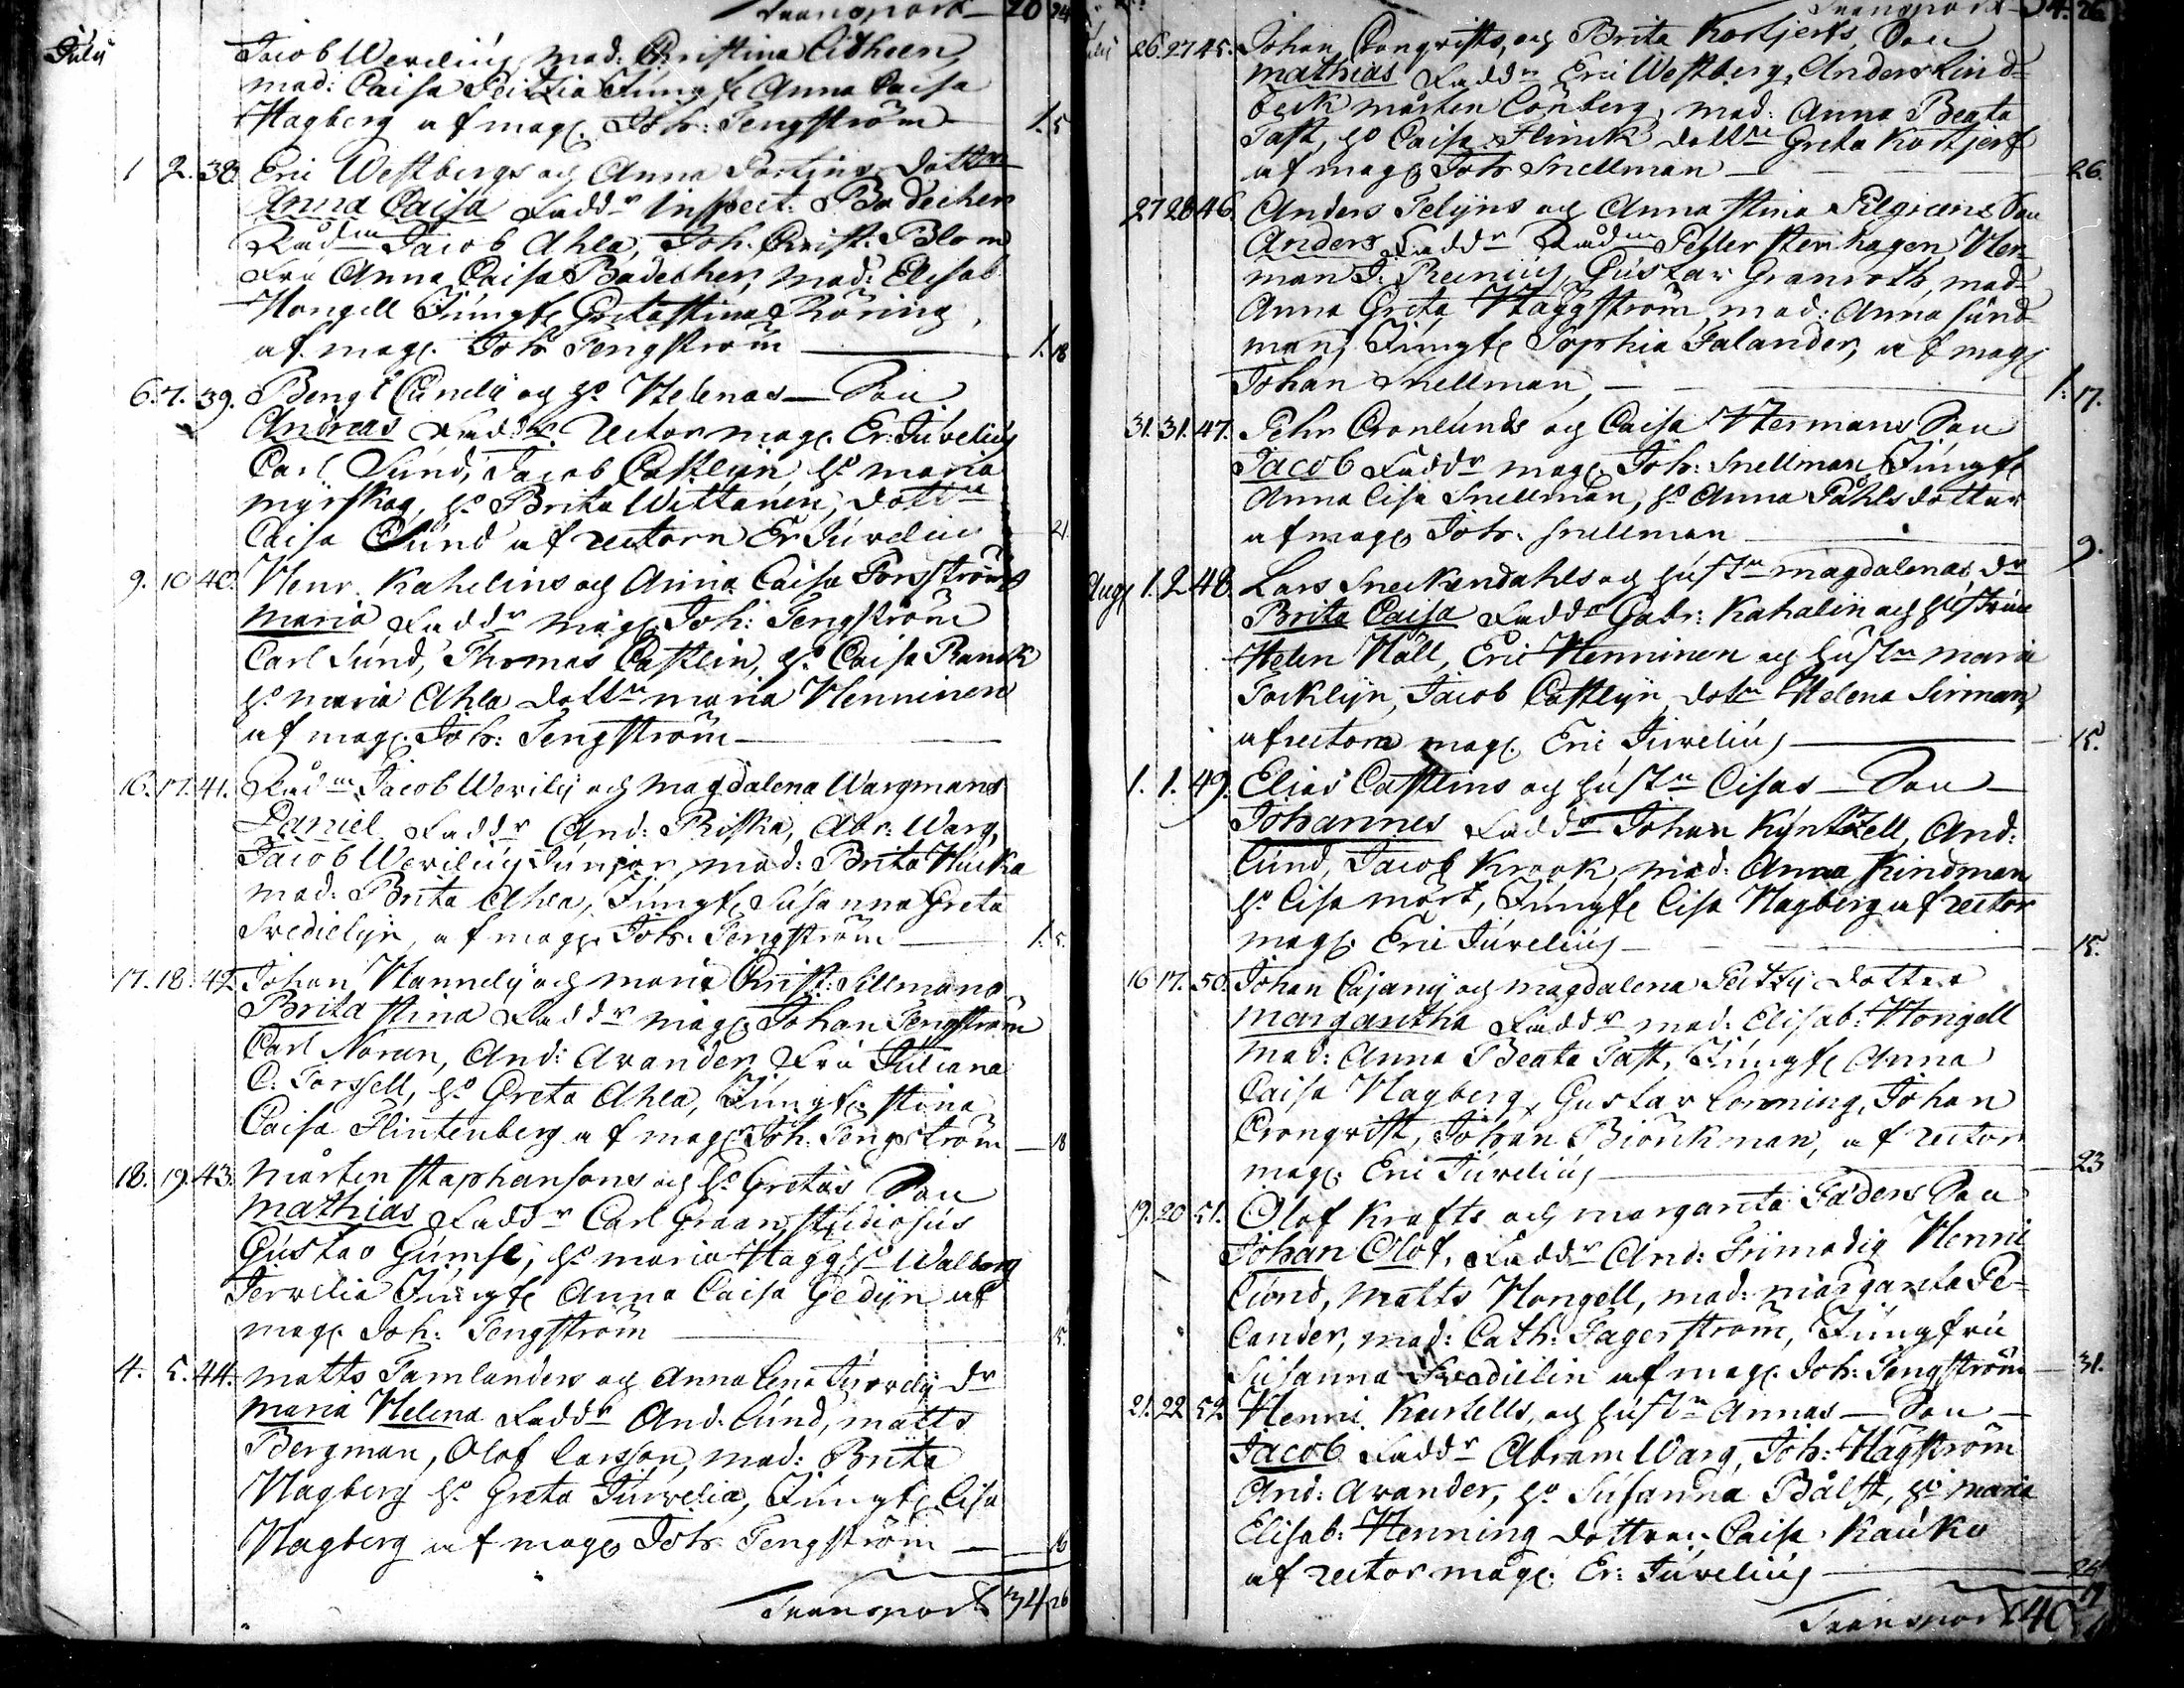 Transport 20 24
July
Jacob Werelius, mad: Christina Litheen
mad: Caisa Peitzia Jungf. Anna Caisa
Hagberg af mag. Joh: Tengström — 1. 5
1 2. 38. Eric Westbergs og Anna Fortins dottr
Anna Caisa Faddr Inspect: Badecher
Rådm Jacob Ahla, Joh. Christ: Blom
Fru Anna Caisa Badecher, mad: Elisab
Hongell Jungf. Greta Stina Röring,
af mag. Joh Tengström — 1. 18
6. 7. 39. Bengt og h:o Helenas — Son
Andreas Faddr: rector mag. Er: Juvelius
Carl Sund, Jacob Castlin, h:o maria
myrskog, h:o Brita Wittanen, dottn
Caisa Sund af rectorn Er Juvelius — 21.
9. 10 40. Henr. Kahelins og Anna Caisa Forsströms
maria Faddr mag. Joh: Tengström
Carl Sund, Thomas Castlein, h:o Caisa Ranck
h:o maria Ahla dottn maria Henninen
af mag. Joh: Tengström —
16. 17. 41. Rådm Jacob Werely och magdalena Wargmans
Daniel Faddr And: Riska, Abr: Warg,
Jacob Werelius Junior, mad: Brita Kucka
mad: Brita Ahla, Jungf. Susanna Greta
Svedielyn, af mag. Joh: Tengström — 1. 5.
17. 18. 42. Johan Hannely och maria Christ: Sillmans
Brita Stina Faddr mag. Johan Tengström
Carl Noren, And: Arander, Fru Juliana
C: Forssell, h:o Greta Ahla, Jungf: Stina
Caisa Flintenberg af mag. Joh: Tengström — 18
18. 19. 43. mårten Staphansons og h:o Gretas Son
mathias Faddr Carl Graan, studiosus
Gustav Gumse, h:o maria Hagg, h:o Walborg
Jervelia Jungf. Anna Caisa Gedyn af
mag. Joh: Tengström — 5.
4. 5. 44. matts Tamlanders og Anna Lena Juvely dr
maria Helena Faddr And: Lund, matts
Bergman, Olof Larsson, mad: Brita
Hagberg h:o Greta Juvelia, Jungf. Lisa
Hagberg af mag. Joh: Tengström — 16
Transport 34 26
Transport 34. 26
26. 27 45. Johan Cronqvists, og Brita Kortjerfs, Son
mathias Faddr Eric Westberg, Anders Lind-
beck mårten Lönberg, mad: Anna Beata
Fast, h:o Caisa Flinck dottn Greta Kortjerf
af mag. Joh Snellman — 26.
27 28 46. Anders Felyns og Anna Stina Pilgrens Son
Anders Faddr Rådm Petter Stenhagen Her-
man J: Renius, Gustav Granroth, mad-
Anna Greta Häggström, mad: Anna Sund-
man, Jungf. Sophia Falander, af mag.
Johan Snellman — 1. 17.
31. 31. 47. Pehr Cronlunds og Caisa Hermans Son
Jacob Faddr mag. Joh: Snellman Jungf
Anna Lisa Snellman, h:o Anna Påhlsdotter
af mag. Joh: Snellman — 9.
Aug 1. 2. 48. Lars Sneckendahls og hustr magdalenas dr
Brita Caisa Faddr Gabr: Kahalin och hustrun
Helen Häll, Eric Henninen og hustr maria
Jacklijn, Jacob Castlyn dotn Helena Sirman,
af rectorn mag. Eric Juvelius — 15.
1. 1. 49. Elias Castleins og hustr Lisas — Son —
Johannes Faddr Johan Kyntzell, And:
Lund, Jacob Krook, mad: Anna Kindman
h:o Lisa mört, Jungf. Lisa Hagberg af rector
mag. Eric Juvelius — 15.
16 17. 50. Johan Cajany och magdalena Peitzy dotter
margaretha Faddr mad: Elisab: Hongell
mad: Anna Beata Fast, Jungf. Anna
Caisa Hagberg, Gustav Lonning, Johan
Cronqvist, Johan Biörkman, af rector
mag. Eric Juvelius — 23
19. 20 51. Olof Krafts och margareta Faders Son
Johan Olof, Faddr And: Frimodig Henric
Lund, matts Hongell, mad: margareta Fe-
lander, mad: Cath: Fagerström, Jungfru
Susanna Svedielin af mag. Joh: Tengström — 31.
21. 22 52. Henric Kartells, og hustr Annas — Son —
Jacob Faddr Abram Warg, Joh: Hägström
And: Arander, h:o Susanna Bålst, h:o maria
Elisab: Henning dottren Caisa Kauko
af rector mag. Er: Juvelius — 24
Transport 40 17